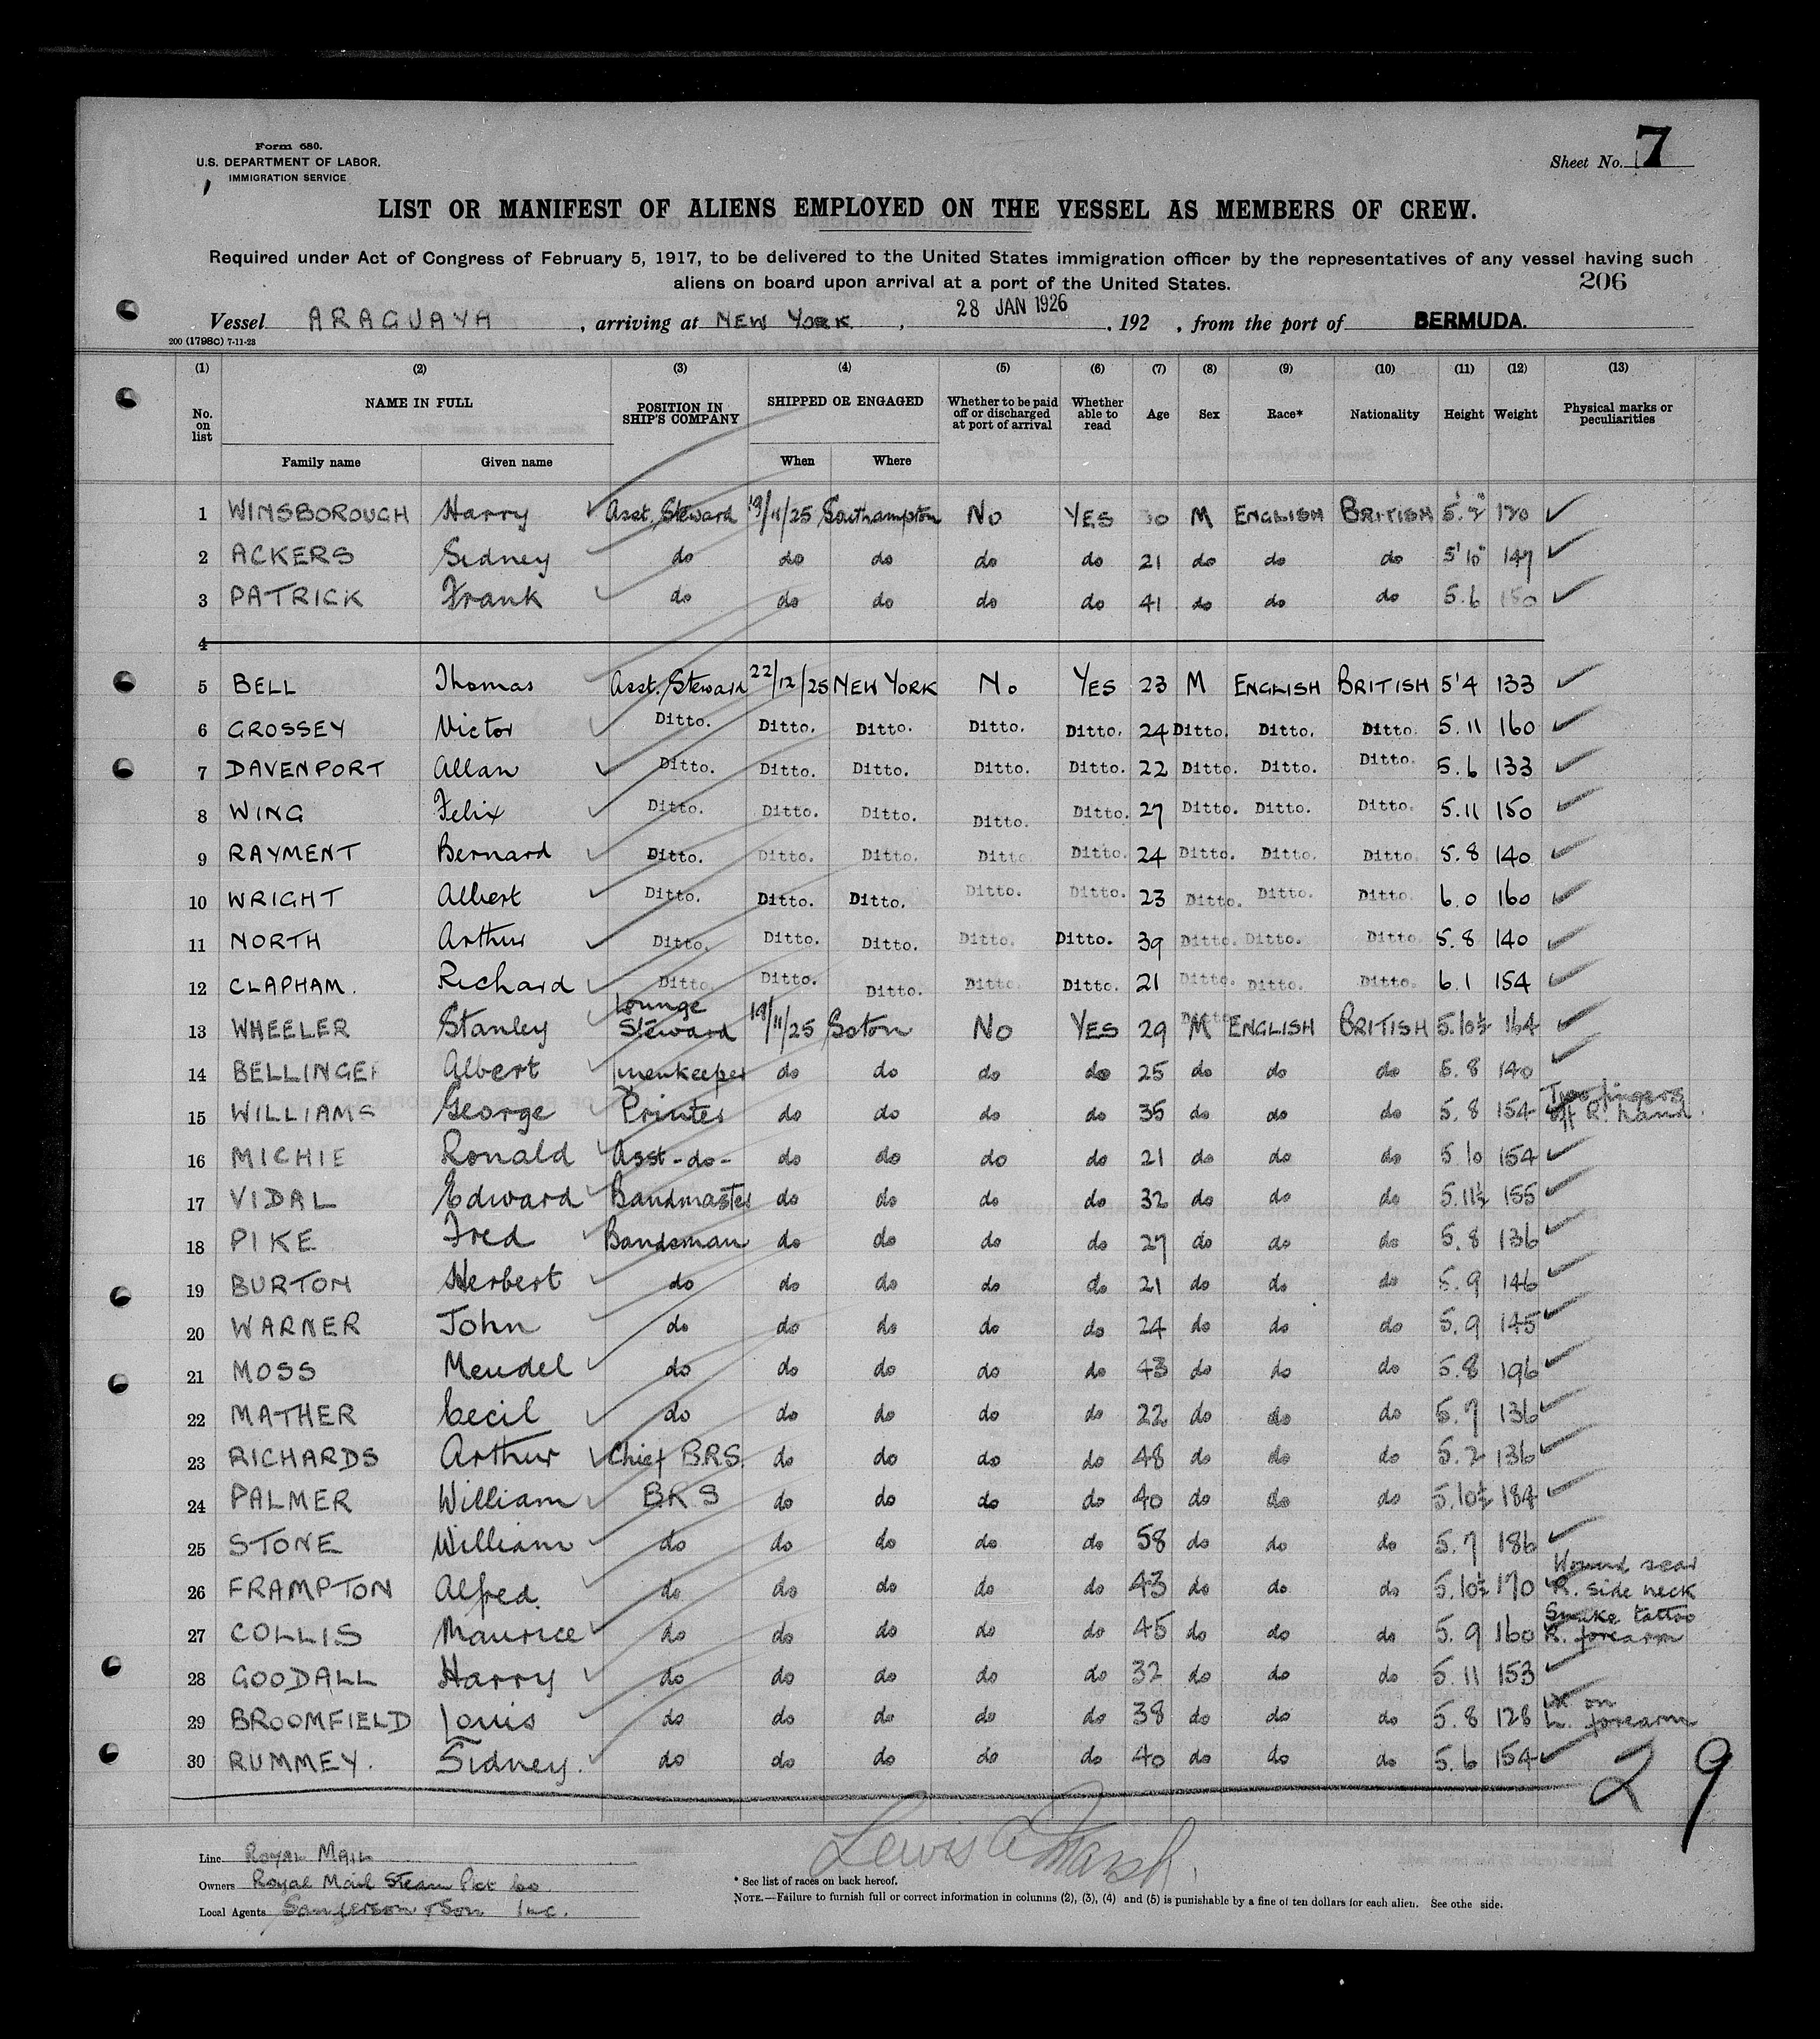 Form 680.
U.S. DEPARTMENT OF LABOR,
IMMIGRATION SERVICE
Sheet No. 7
LIST OR MANIFEST OF ALIENS EMPLOYED ON THE VESSEL AS MEMBERS OF CREW.
Required under Act of Congress of February 5, 1917, to be delivered to the United States immigration officer by the representatives of any vessel having such
aliens on board upon arrival at a port of the United States.
206
Vessel ARAGUAYA, arriving at NEW YORK, 28 JAN 1926, 192 , from the port of BERMUDA.
200 (1798C) 7-11-23
(1) (2) (3) (4) (5) (6) (7) (8) (9) (10) (11) (12) (13)
No. on list NAME IN FULL POSITION IN SHIP'S COMPANY SHIPPED OR ENGAGED Whether to be paid off or discharged at port of arrival Whether able to read Age Sex Race* Nationality Height Weight Physical marks or peculiarities
Family name Given name When Where
1 WINSBOROUGH Harry Asst. Steward 19/11/25 Southampton No YES 30 M ENGLISH BRITISH 5'.7" 120
2 ACKERS Sidney do do do do do 21 do do do 5'10" 147
3 PATRICK Frank do do do do do 41 do do do 5.6 150
4
5 BELL Thomas Asst. Steward 22/12/25 NEW YORK No YES 23 M ENGLISH BRITISH 5'4 133
6 GROSSEY Victor Ditto. Ditto. Ditto. Ditto. Ditto. 24 Ditto. Ditto. Ditto. 5.11 160
7 DAVENPORT Allan Ditto. Ditto. Ditto. Ditto. Ditto. 22 Ditto. Ditto. Ditto. 5.6 133
8 WING Felix Ditto. Ditto. Ditto. Ditto. Ditto. 27 Ditto. Ditto. Ditto. 5.11 150
9 RAYMENT Bernard Ditto. Ditto. Ditto. Ditto. Ditto. 24 Ditto. Ditto. Ditto. 5.8 140
10 WRIGHT Albert Ditto. Ditto. Ditto. Ditto. Ditto. 23 Ditto. Ditto. Ditto. 6.0 160
11 NORTH Arthur Ditto. Ditto. Ditto. Ditto. Ditto. 39 Ditto. Ditto. Ditto. 5.8 140
12 CLAPHAM. Richard Ditto. Ditto. Ditto. Ditto. Ditto. 21 Ditto. Ditto. Ditto. 6.1 154
13 WHEELER Stanley Lounge Steward 19/11/25 Soton No YES 29 M ENGLISH BRITISH 5.10½ 164
14 BELLINGER Albert Linenkeeper do do do do 25 do do do 5.8 140
15 WILLIAMS George Printer do do do do 35 do do do 5.8 154 Two fingers off R. hand.
16 MICHIE Ronald Asst -do- do do do do 21 do do do 5.10 154
17 VIDAL Edward Bandmaster do do do do 32 do do do 5.11½ 155
18 PIKE Fred Bandsman do do do do 27 do do do 5.8 136
19 BURTON Herbert do do do do do 21 do do do 5.9 146
20 WARNER John do do do do do 24 do do do 5.9 145
21 MOSS Mendel do do do do do 43 do do do 5.8 196
22 MATHER Cecil do do do do do 22 do do do 5.7 136
23 RICHARDS Arthur Chief B.R.S. do do do do 48 do do do 5.2 136
24 PALMER William B.R S do do do do 40 do do do 5.10½ 184
25 STONE William do do do do do 58 do do do 5.7 186
26 FRAMPTON Alfred. do do do do do 43 do do do 5.10½ 170 Wound scar R. side neck
27 COLLIS Maurice do do do do do 45 do do do 5.9 160 Snake tattoo R. forearm
28 GOODALL Harry do do do do do 32 do do do 5.11 153
29 BROOMFIELD Louis do do do do do 38 do do do 5.8 128 on L. forearm
30 RUMMEY. Sidney. do do do do do 40 do do do 5.6 154
29
Lewis A Marsh.
Line ROYAL MAIL
Owners Royal Mail Steam Pkt Co
Local Agents Sanderson & Son Inc.
* See list of races on back hereof.
NOTE.—Failure to furnish full or correct information in columns (2), (3), (4) and (5) is punishable by a fine of ten dollars for each alien. See othe side.